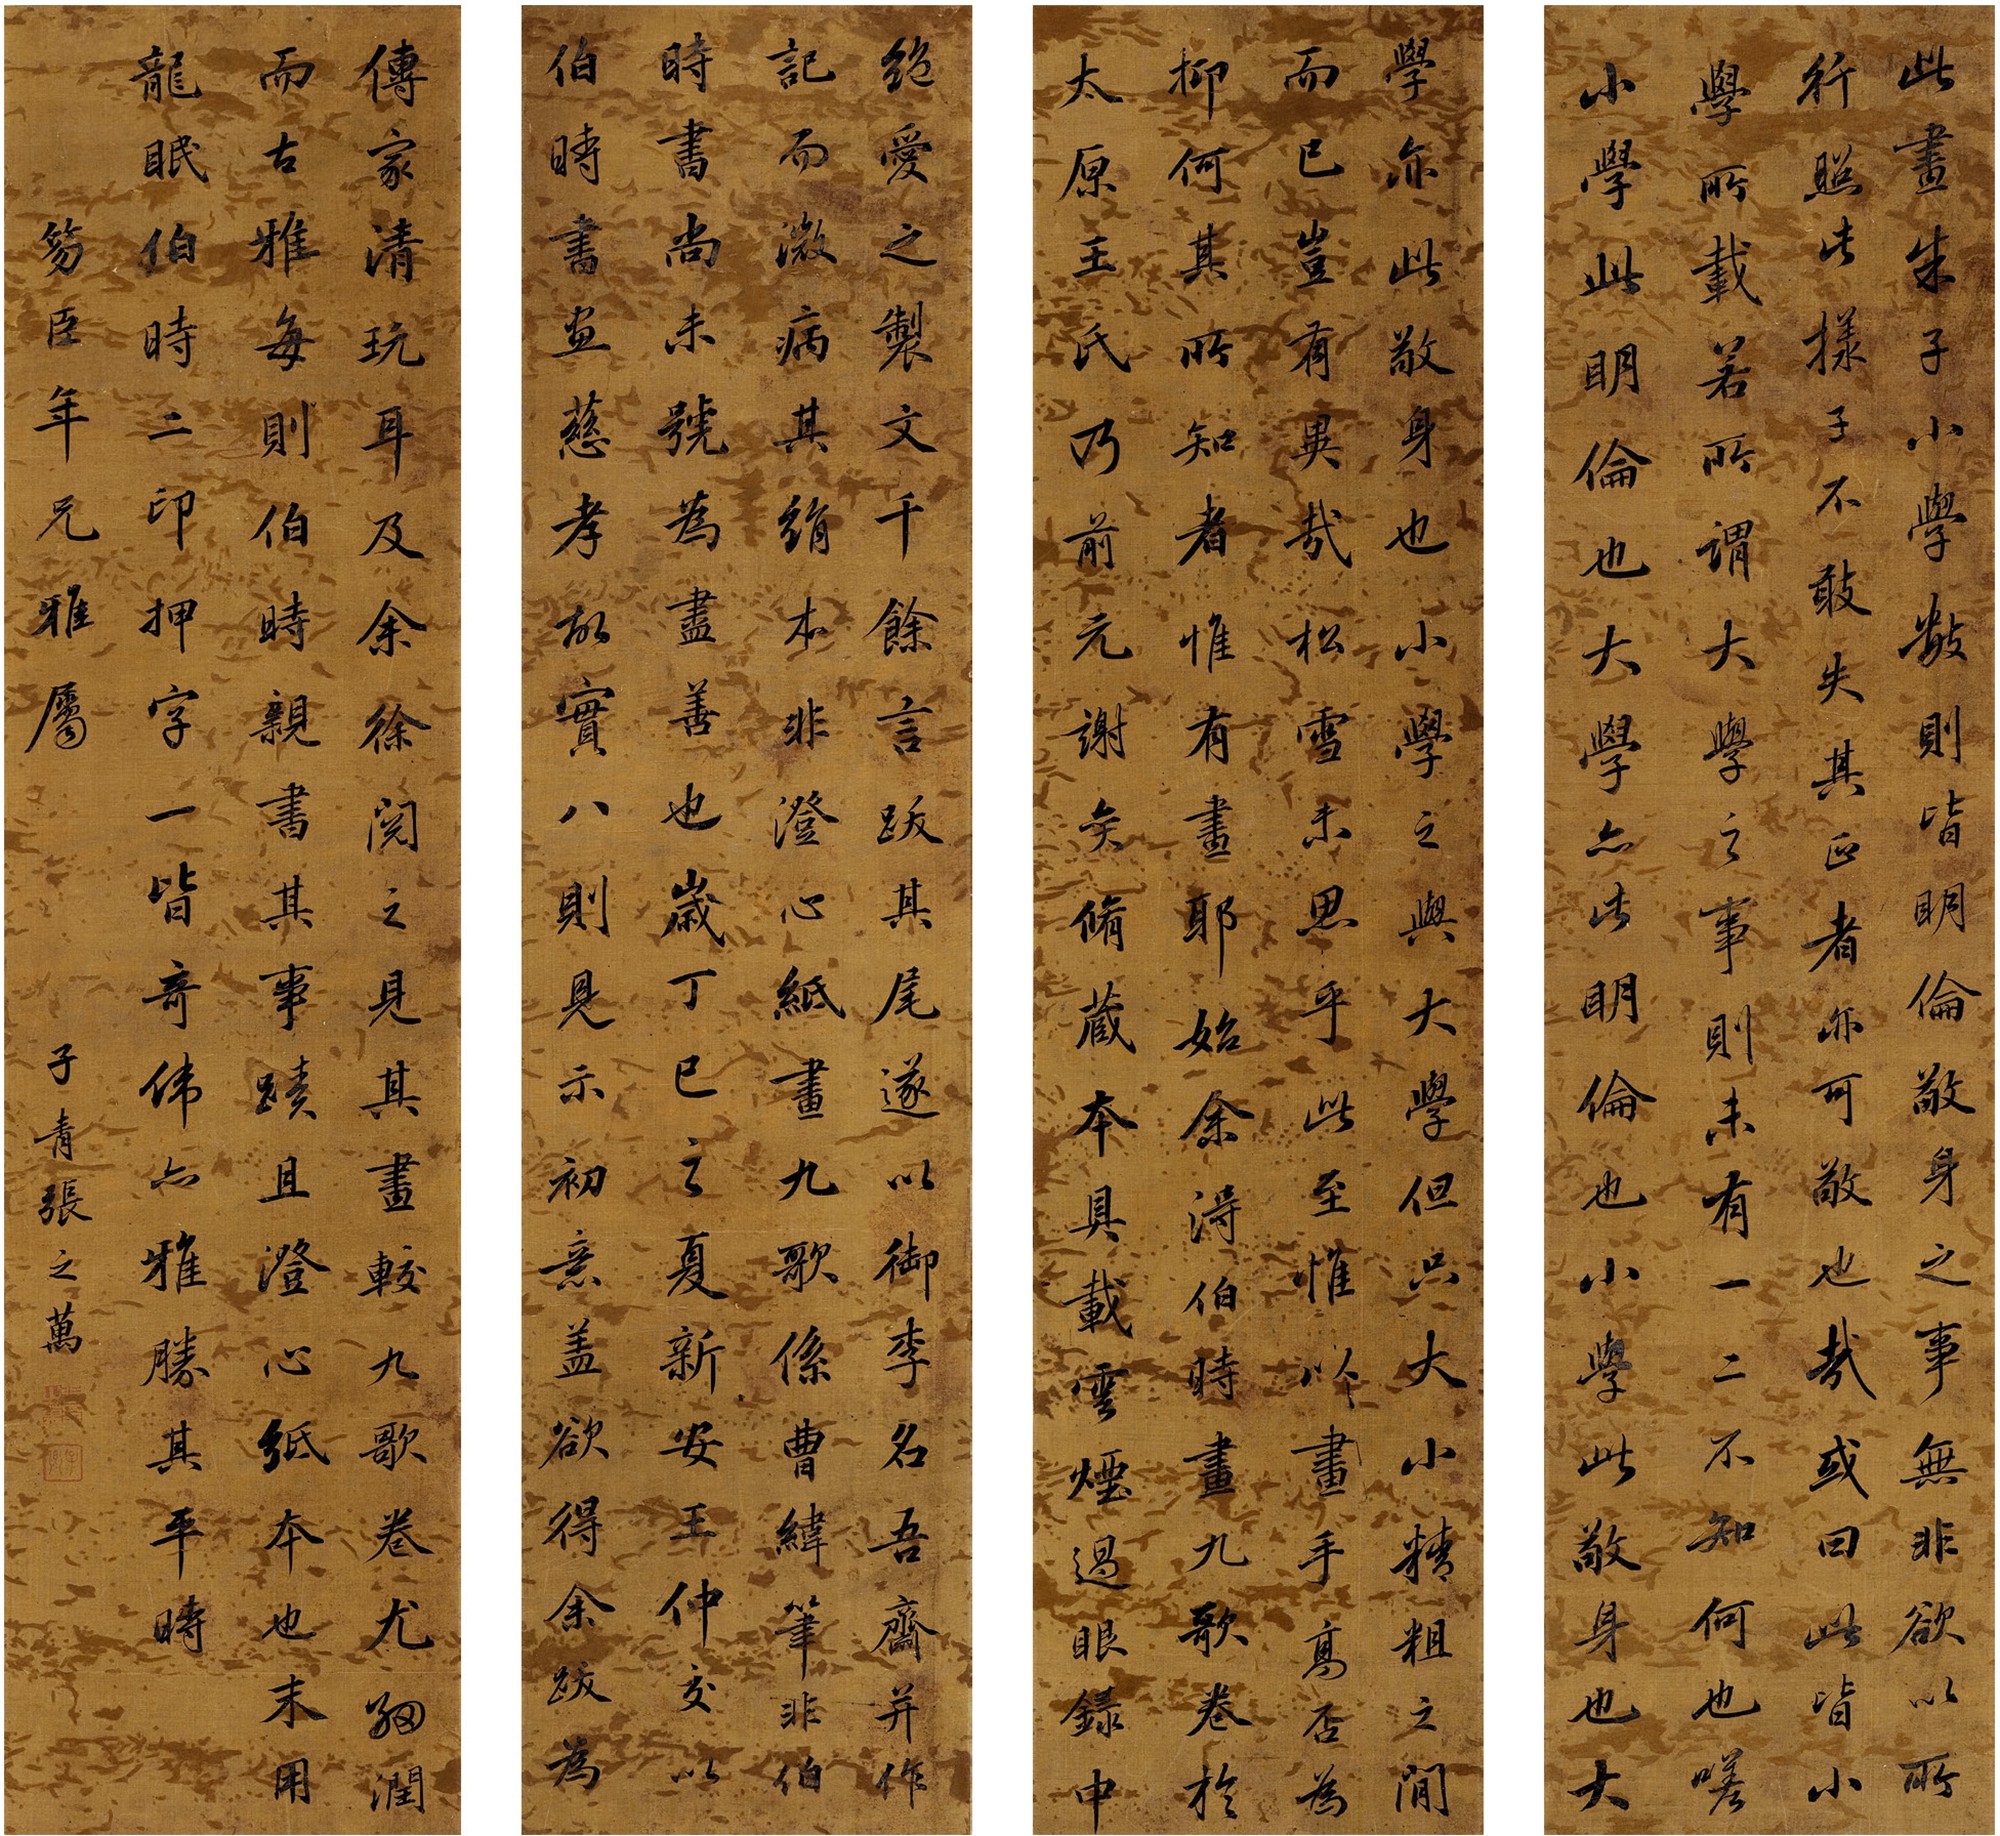 此畫朱子小學數則皆明倫敬身之事無非欲以所
行照此樣子不敢失其正者亦可敬也哉或曰此皆小
學所載若所謂大學之事則未有一二不知何也嗟
小學此明倫也大學亦此明倫也小學此敬身也大
學亦此敬身也小學之與大學但只大小精粗之間
而已豈有異哉松雪未思乎此至惟以畫手高否為
抑何其所知者惟有畫耶始余得伯時畫九歌卷於
太原王氏乃前元謝矣脩蔵本具載雲煙過眼錄中
絶愛之製文千餘言跋其尾遂以御李名吾齋并作
記而微病其絹本非澄心紙畫九歌係曹緯筆非伯
時書尚未號為盡善也歲丁巳之夏新安王仲交以
伯時書畫慈孝故實八則見示初意盖欲得余跋為
傳家清玩耳及余徐閱之見其畫較九歌卷尤細潤
而古雅每則伯時親書其事蹟且澄心紙本也末用
龍眠伯時二印押字一皆奇偉亦雅勝其平時
笏臣年兄雅屬
子青張之萬